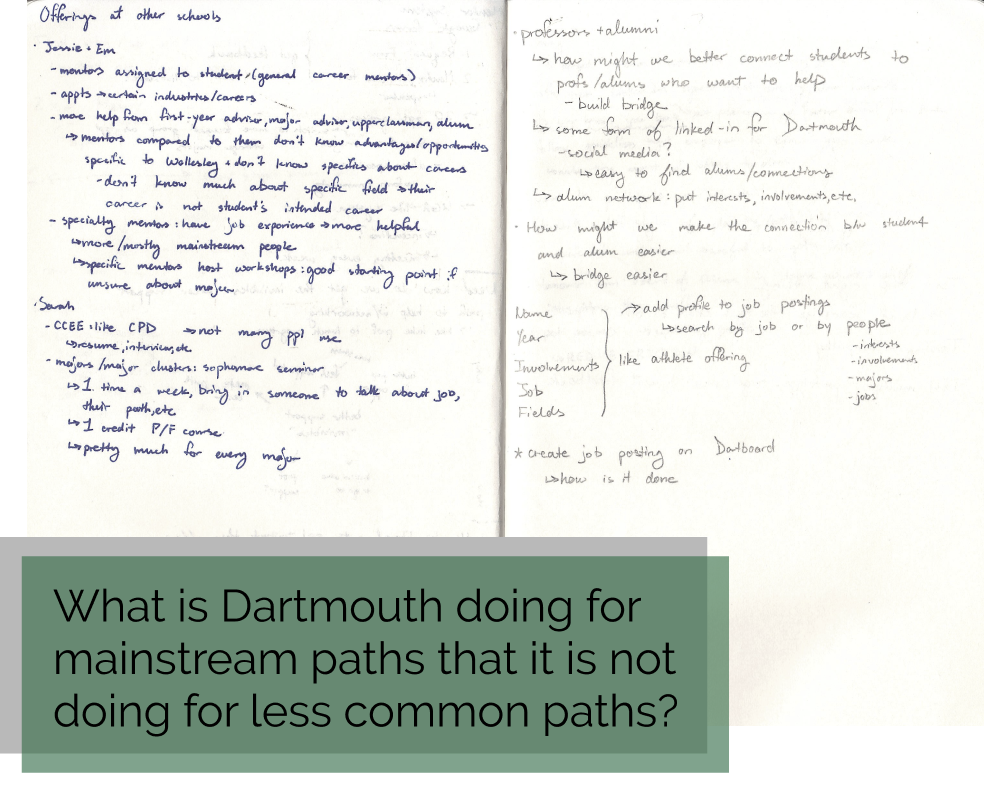 Offerings at other schools
· Jessie + Em
- mentors assigned to student (general career mentors)
- appts → certain industries/careers
- more help from first-year advisor, major advisor, upperclassman, alum
↳ mentors compared to them don't know advantages/opportunities
specific to Wellesley + don't know specifics about careers
- don't know much about specific field → their
career is not student's intended career
- specialty mentors: have job experience → more helpful
↳ more/mostly mainstream people
↳ specific mentors host workshops: good starting point if
unsure about major
· Sarah
- CCEE: like CPD → not many ppl use
↳ resume, interview, etc
- majors/major clusters: sophomore seminar
↳ 1 time a week, bring in someone to talk about job,
their path, etc
↳ 1 credit P/F course
↳ pretty much for every major
· professors + alumni
↳ how might we better connect students to
profs/alums who want to help
- build bridge
↳ some form of linked-in for Dartmouth
- social media?
↳ easy to find alums/connections
↳ alum network: put interests, involvements, etc.
· How might we make the connection b/w student
and alum easier
↳ bridge easier
Name
Year
Involvements
Job
Fields
→ add profile to job postings
↳ search by job or by people
- interests
- involvements
- majors
- jobs
like athlete offering
* create job posting on Dartboard
↳ how is it done
What is Dartmouth doing for
mainstream paths that it is not
doing for less common paths?